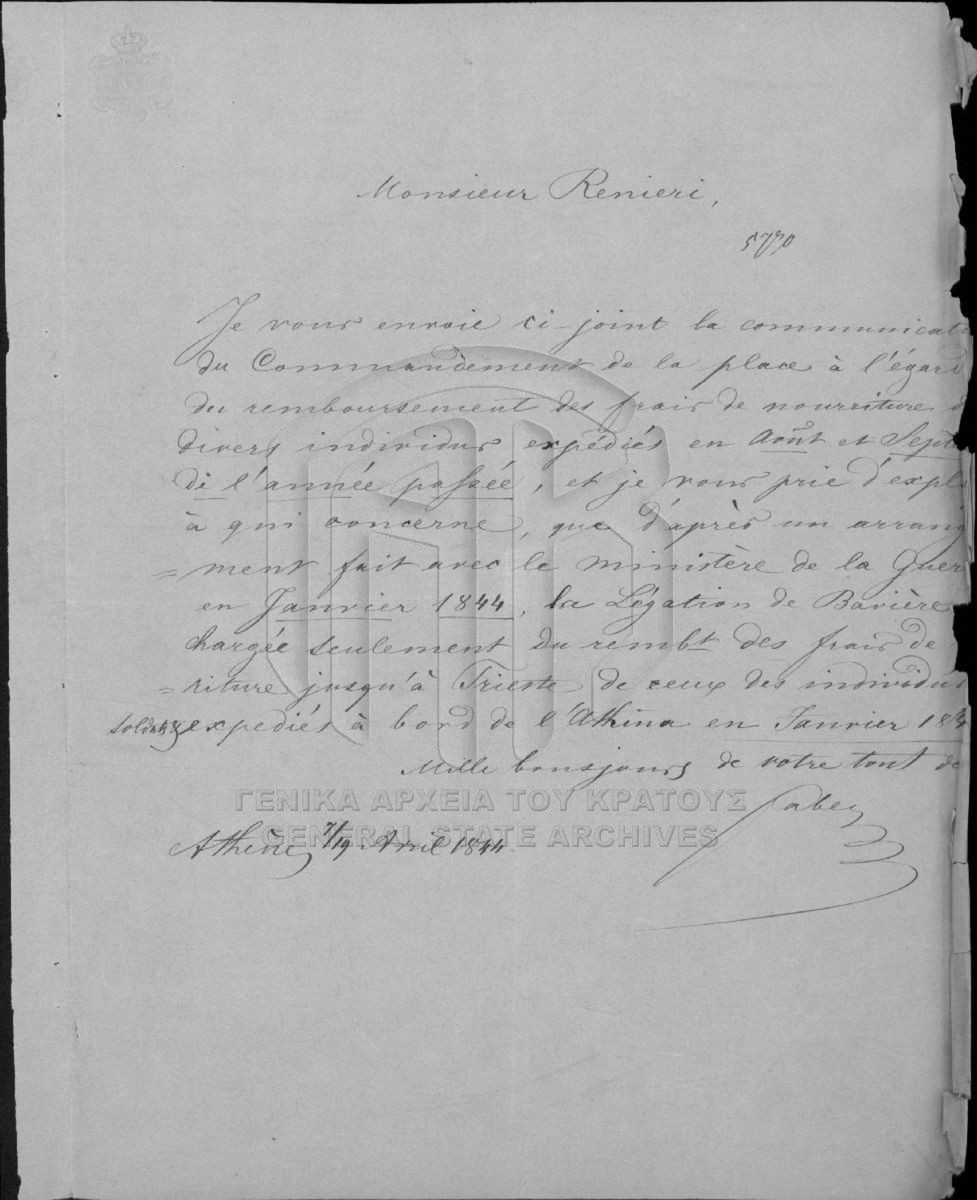 Monsieur Renieri,
5770
Je vous envoie ci-joint la communicat
du Commandement de la place à l'égard
du remboursement des frais de nourriture
divers individus expédiés en Août et Sept
de l'année passée, et je vous prie d'expl
à qui concerne, que d'après un arrang
=ment fait avec le ministère de la Guer
en Janvier 1844, la Légation de Bavière
chargée seulement du rembt des frais de
=riture jusqu'à Trieste de ceux des individus
soldats expediés à bord de l'Athina en Janvier 184
Mille bonsjours de votre tout de
ΓΕΝΙΚΑ ΑΡΧΕΙΑ ΤΟΥ ΚΡΑΤΟΥΣ
GENERAL STATE ARCHIVES
Athènes 7/19 Avril 1844.